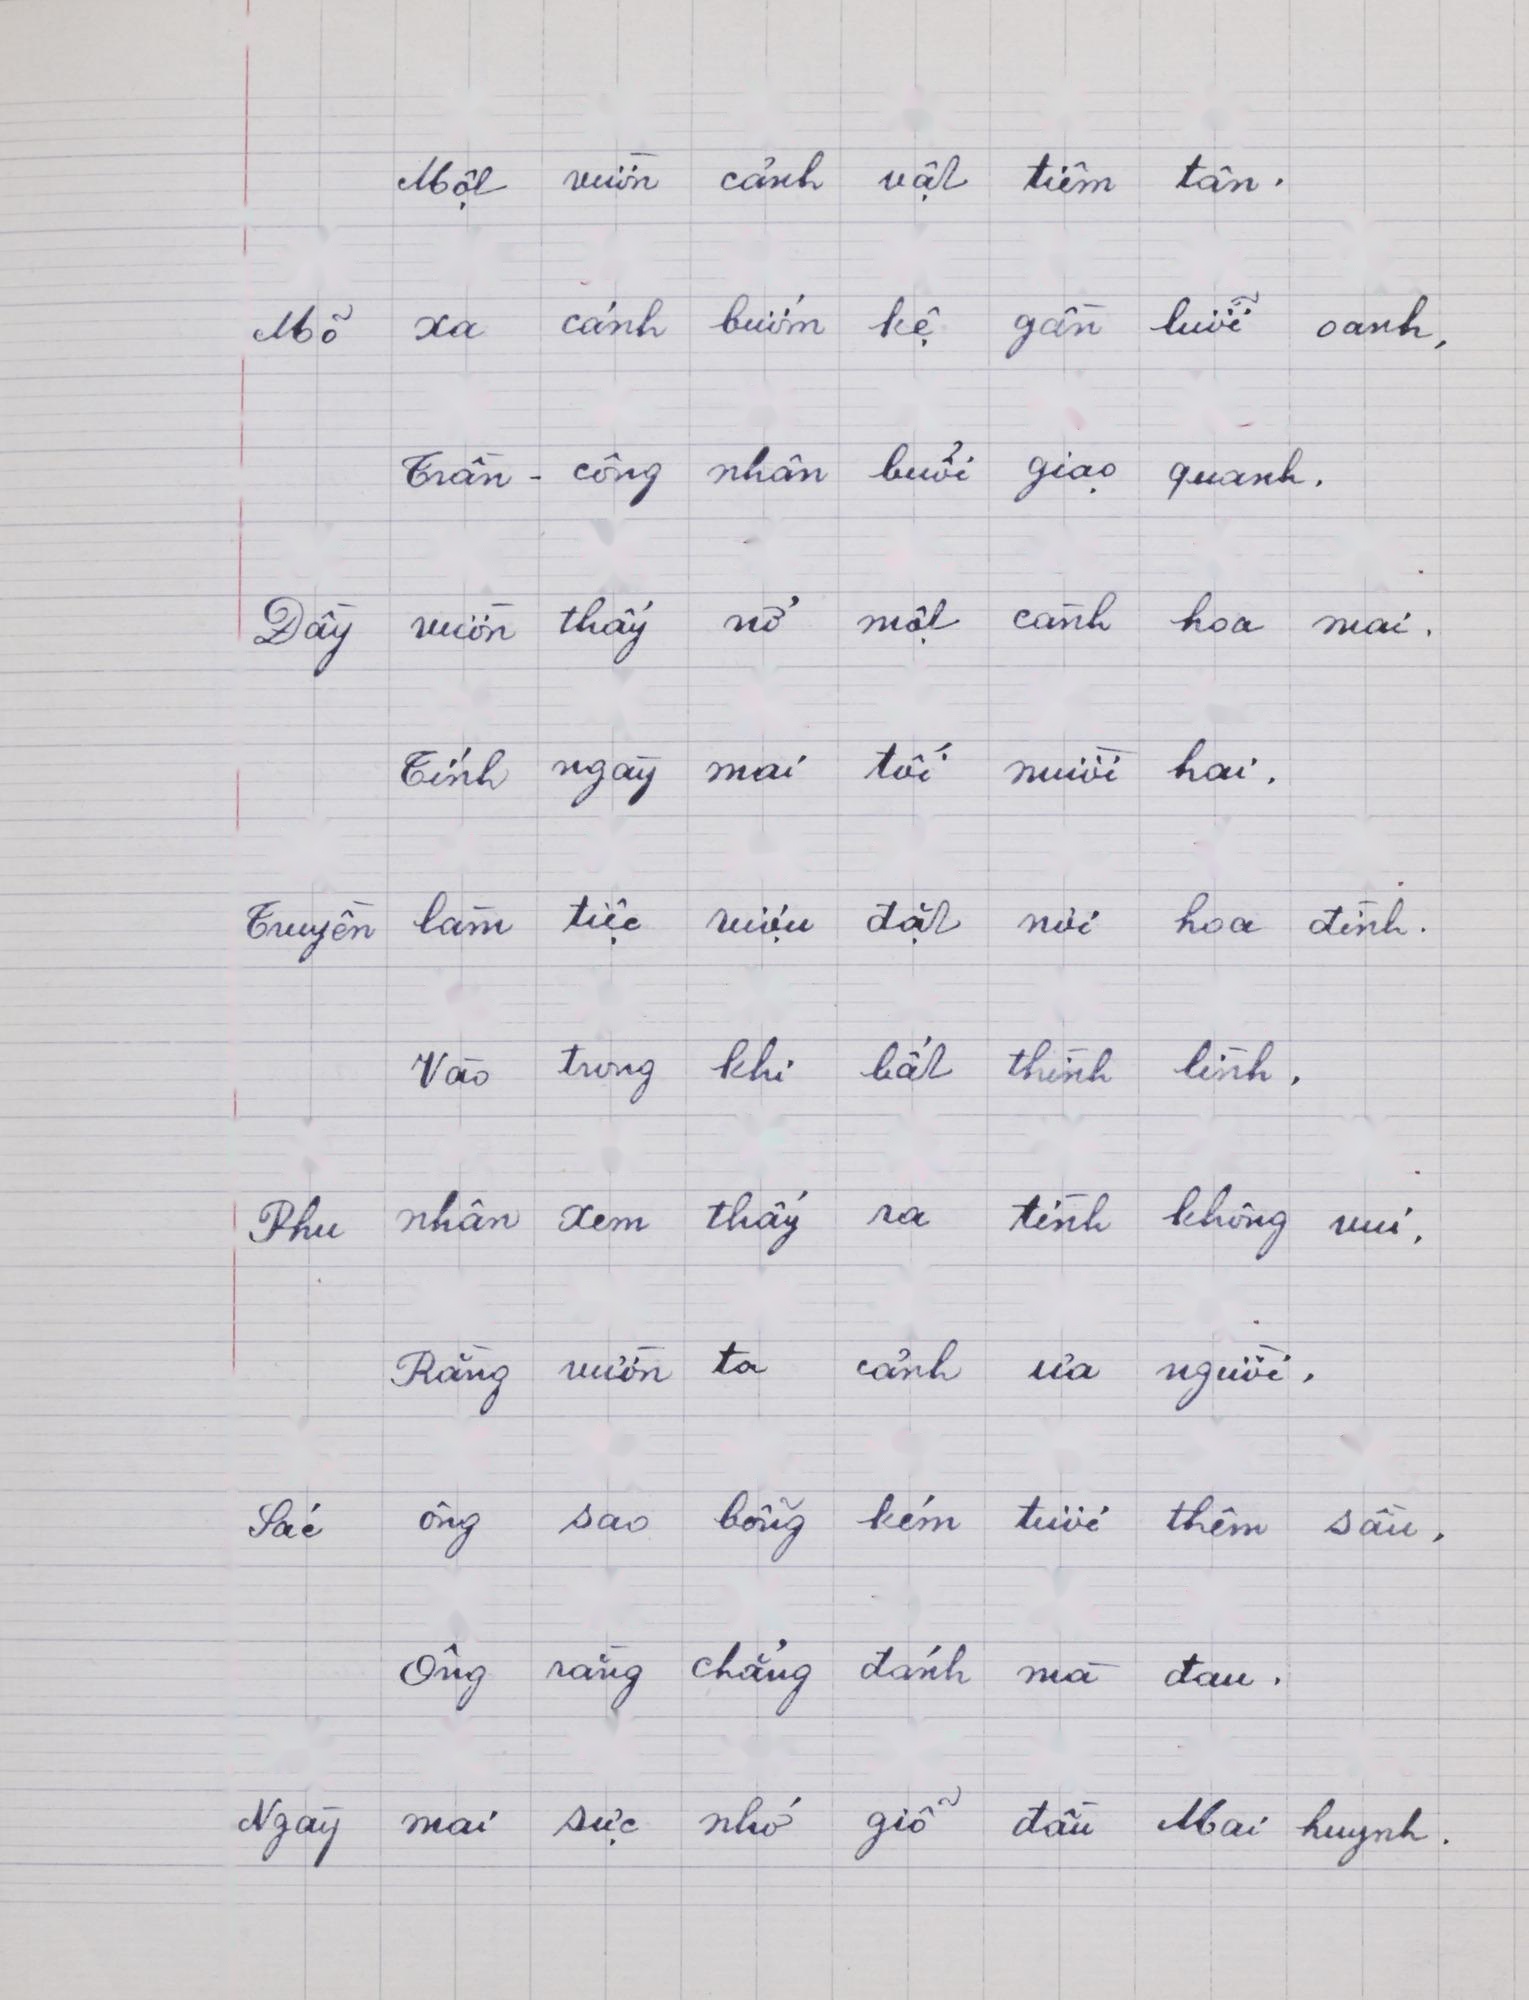 Một vườn cảnh vật tiêm tân.
Mỗ xa cánh bướm kệ gần lưỡi oanh,
Trần - công nhân buổi giạo quanh.
Dầy vườn thấy nở một cành hoa mai.
Tính ngày mai tối mười hai.
Truyền làm tiệc rượu đặt nơi hoa đình.
Vào trong khi bất thình lình,
Phu nhân xem thấy ra tình không vui,
Rằng vườn ta cảnh ưa người,
Sắc ông sao bỗng kém tươi thêm sầu,
Ông rằng chẳng đánh mà đau.
Ngày mai sực nhớ giỗ đầu Mai huynh.